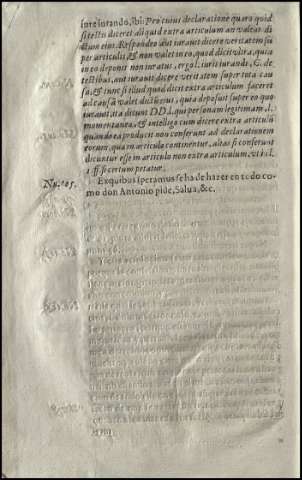 iure iurando, ibi: Pro cuius declaratione quæro quid
si testis diceret aliquid extra articulum an valeat di-
ctum eius. Respondeo aut iurauit dicere veritatem su
per articulis, & non valet in eo, quod dicit vltra, quia
in eo deponit non iuratus, ergo l. iuris iurandi, C. de
testibus, aut iurauit dicere veritatem super tota cau
sa, & tunc si illud quod dicit extra articulum faceret
ad causã valet dictũ eius, quia deposuit super eo quo
iurauit, ita dicunt DD. l. qui personam legitimam, l.
momentanea, & intelligo eum dicere extra articulũ
quando ea producit non conferunt ad declarationem
eorum, quæ in articulo continentur, alias si conferunt
dicuntur esse in articulo non extra articulum, vt
l. ff. si certum petatur.
Nu. 105. Ex quibus speramus se ha de hazer en todo co
mo don Antonio pide, Salua, &c.